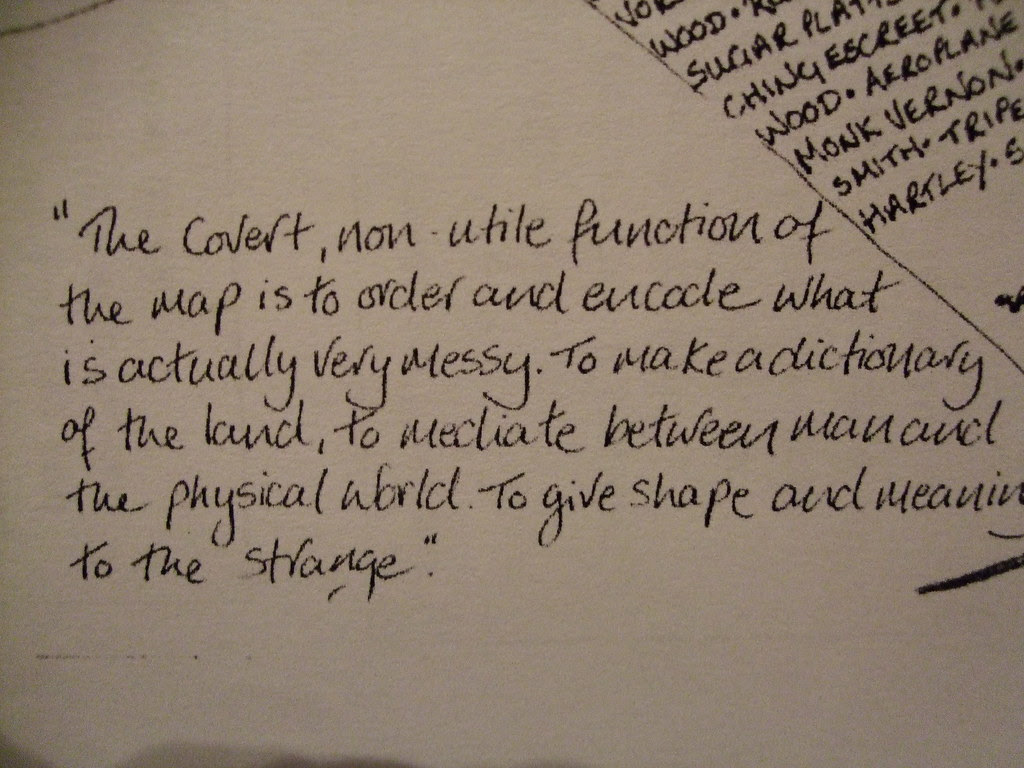 WOOD •
SUGAR PLATT
CHING ESCREET •
WOOD • AEROPLANE
MONK VERNON •
SMITH • TRIPE
HARTLEY • S
"The Covert, non-utile function of
the map is to order and encode what
is actually very messy. To make a dictionary
of the land, to mediate between man and
the physical world. To give shape and meanin
to the strange".